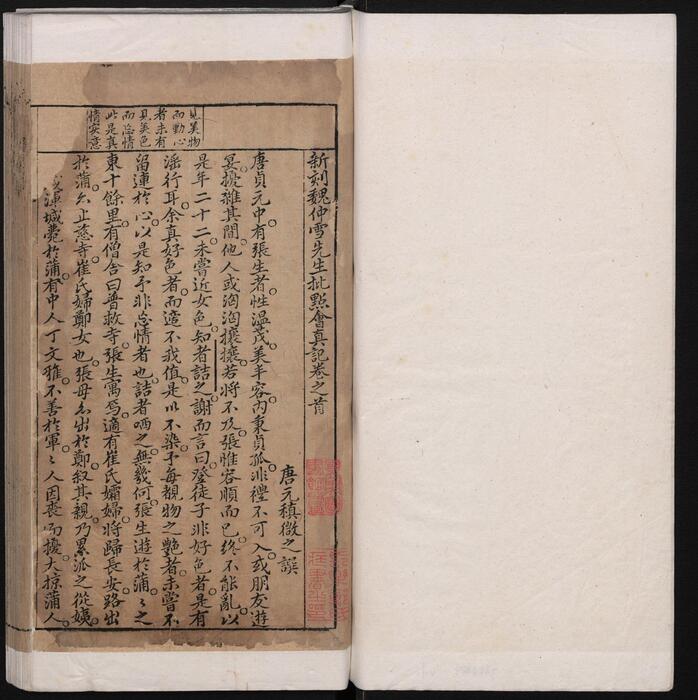 新刻魏仲雪先生批點會真記卷之首
唐元稹微之譔
唐貞元中有張生者性溫茂美丰容內秉貞孤非禮不可入或朋友遊
宴擾雜其間他人或洶洶攘攘若將不及張惟容順而已終不能亂以
是年二十二未嘗近女色知者詰之謝而言曰登徒子非好色者是有
淫行耳余真好色者而適不我值是以不染予每覩物之艷者未嘗不
留連於心以是知予非忘情者也詰者哂之無幾何張生遊於蒲〻之
東十餘里有僧舍曰普救寺張生寓焉適有崔氏孀婦將歸長安路出
於蒲亦止茲寺崔氏婦鄭女也張母亦出於鄭叙其親乃累派之從姨
渾城薨於蒲有中人丁文雅不善於軍〻人因喪而擾大掠蒲人
見美物
而動心
者未有
見美色
而忘情
此是真
情实意